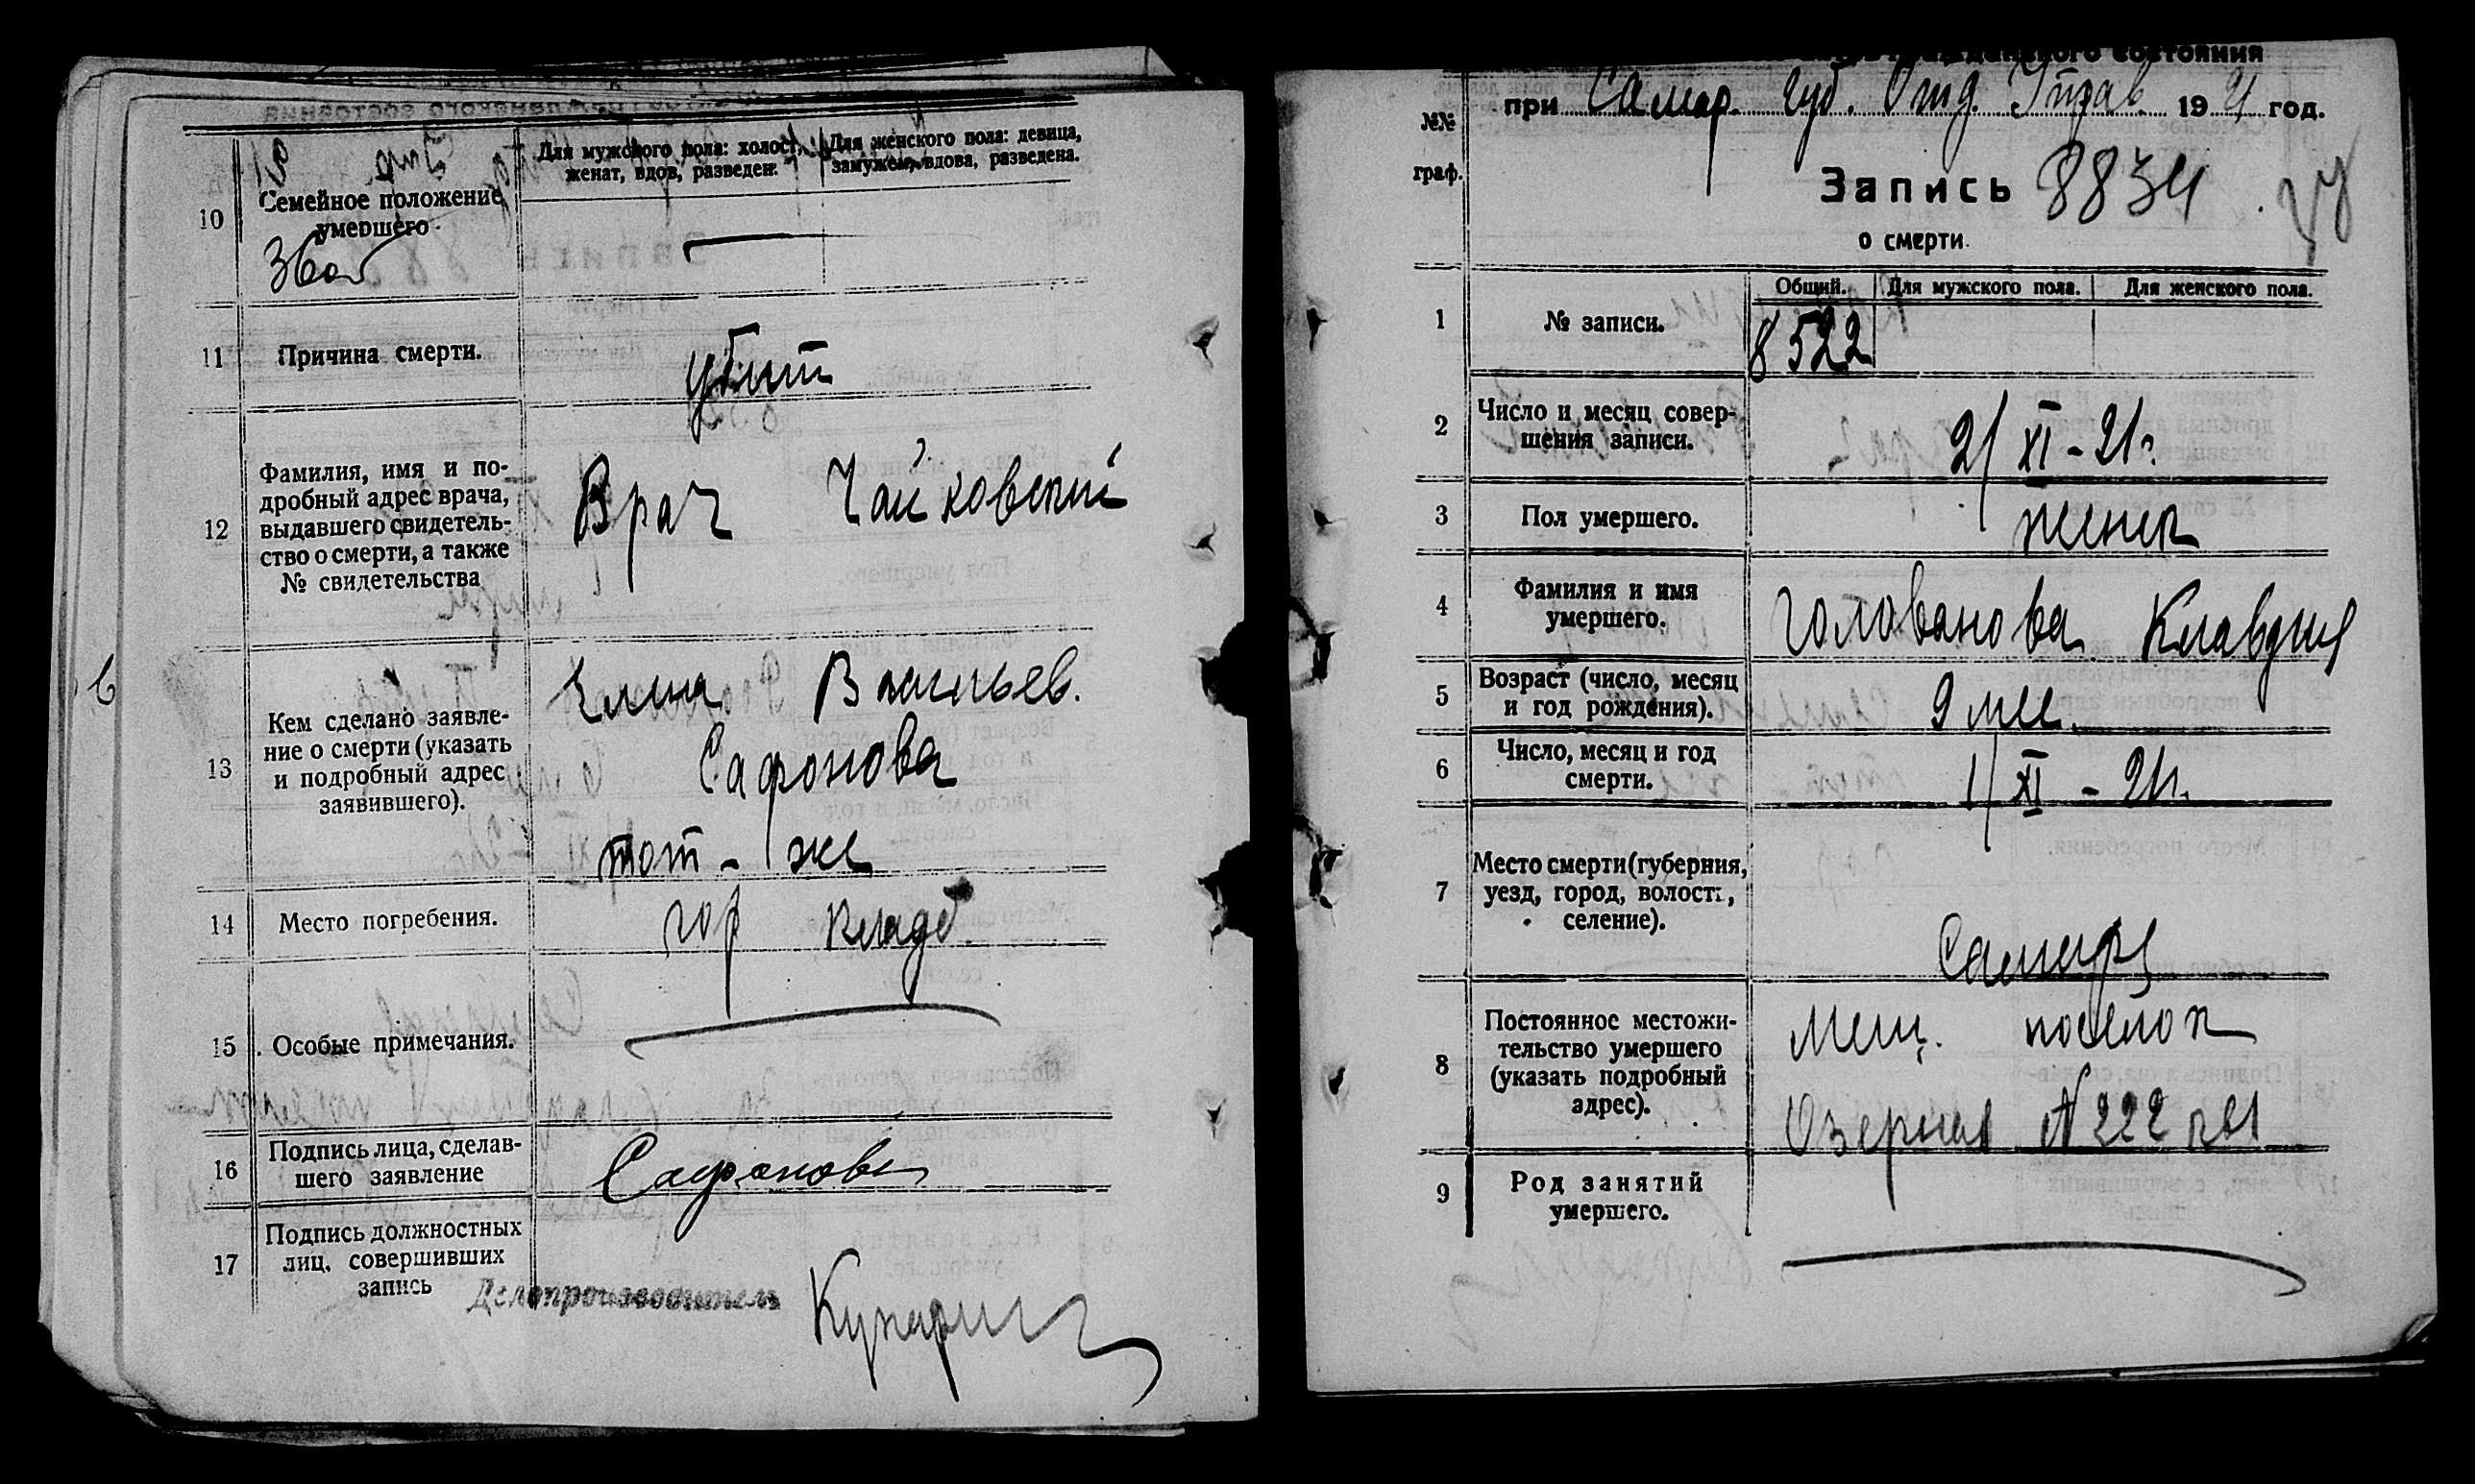 10 Семейное положение умершего.
Для мужского пола: холост, женат, вдов, разведен.
Для женского пола: девица, замужем, вдова, разведена.
—
11 Причина смерти.
убит
12 Фамилия, имя и по-
дробный адрес врача,
выдавшего свидетель-
ство о смерти, а также
№ свидетельства
Врач Чайковский
13 Кем сделано заявле-
ние о смерти (указать
и подробный адрес
заявившего).
Васильев.
Сафонова
тот-же
14 Место погребения.
гор кладб
15 Особые примечания.
16 Подпись лица, сделав-
шего заявление
Сафонова
17 Подпись должностных
лиц, совершивших
запись
Делопроизводитель
гражданского состояния
№№
граф.
при Самар. Губ. Отд. Управ 1921 год.
Запись 8834
о смерти.
Общий. Для мужского пола. Для женского пола.
1 № записи.
8522
2 Число и месяц совер-
шения записи.
2/XI-21г.
3 Пол умершего.
женск
4 Фамилия и имя
умершего.
Голованова Клавдия
5 Возраст (число, месяц
и год рождения).
9 мес.
6 Число, месяц и год
смерти.
1/XI - 21г.
7 Место смерти (губерния,
уезд, город, волость,
селение).
Самара
8 Постоянное местожи-
тельство умершего
(указать подробный
адрес).
Мещ. поселок
Озерная №222 кв1
9 Род занятий
умершего.